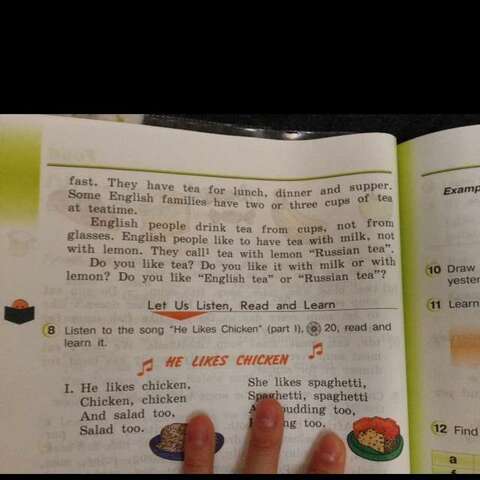 fast. They have tea for lunch, dinner and supper.
Some English families have two or three cups of tea
at teatime.
English people drink tea from cups, not from
glasses. English people like to have tea with milk, not
with lemon. They call¹ tea with lemon "Russian tea".
Do you like tea? Do you like it with milk or with
lemon? Do you like "English tea" or "Russian tea"?
Let Us Listen, Read and Learn
8 Listen to the song "He Likes Chicken" (part I), 20, read and
learn it.
HE LIKES CHICKEN
I. He likes chicken,
Chicken, chicken
And salad too,
Salad too.
She likes spaghetti,
Spaghetti, spaghetti
pudding too,
too.
Examp
10 Draw
yester
11 Learn
12 Find
a
f